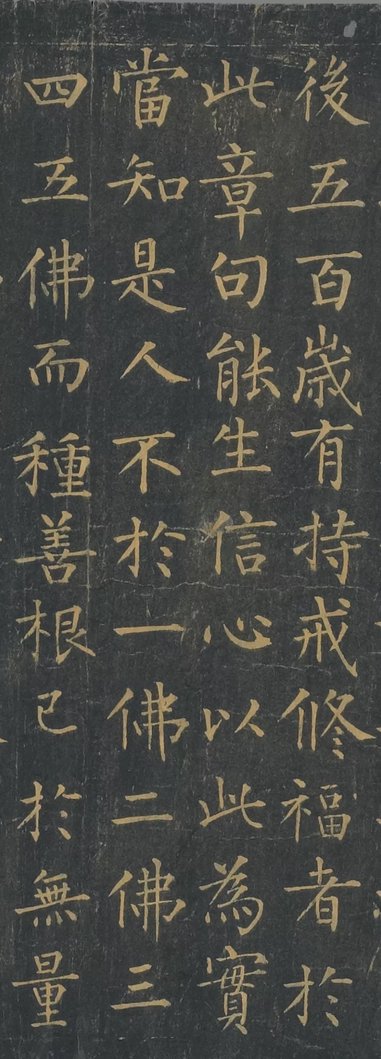 後五百歲有持戒修福者於
此章句能生信心以此為實
當知是人不於一佛二佛三
四五佛而種善根已於無量